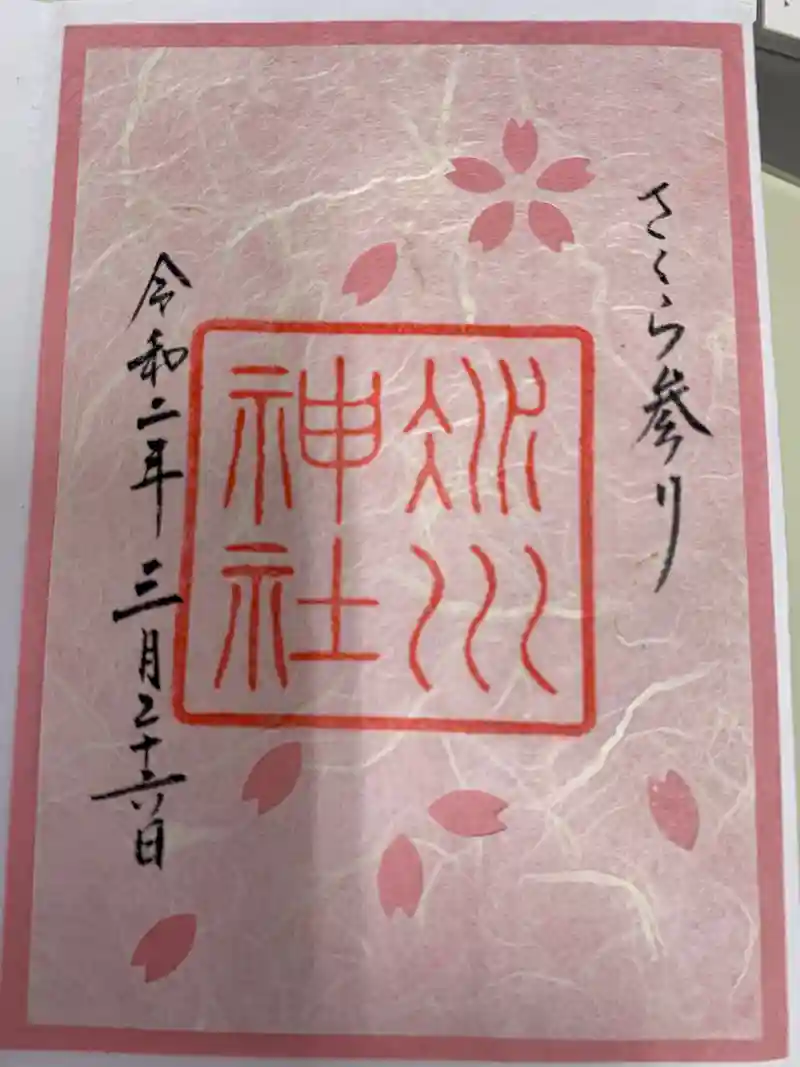 さくら参り
冰川
神社
令和二年 三月二十六日